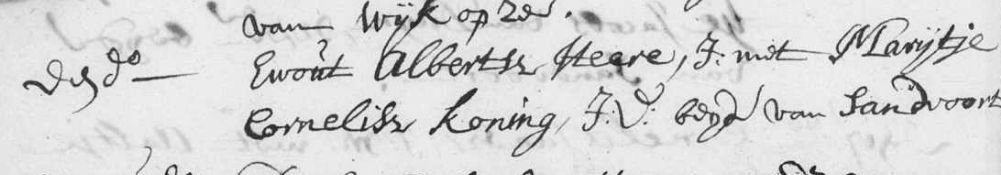 van Wijk op Zé.
Des do — Ewout Albertsz Heere, J: met Marijtje
Cornelisz Koning, J: D: beyd van Sandvoort